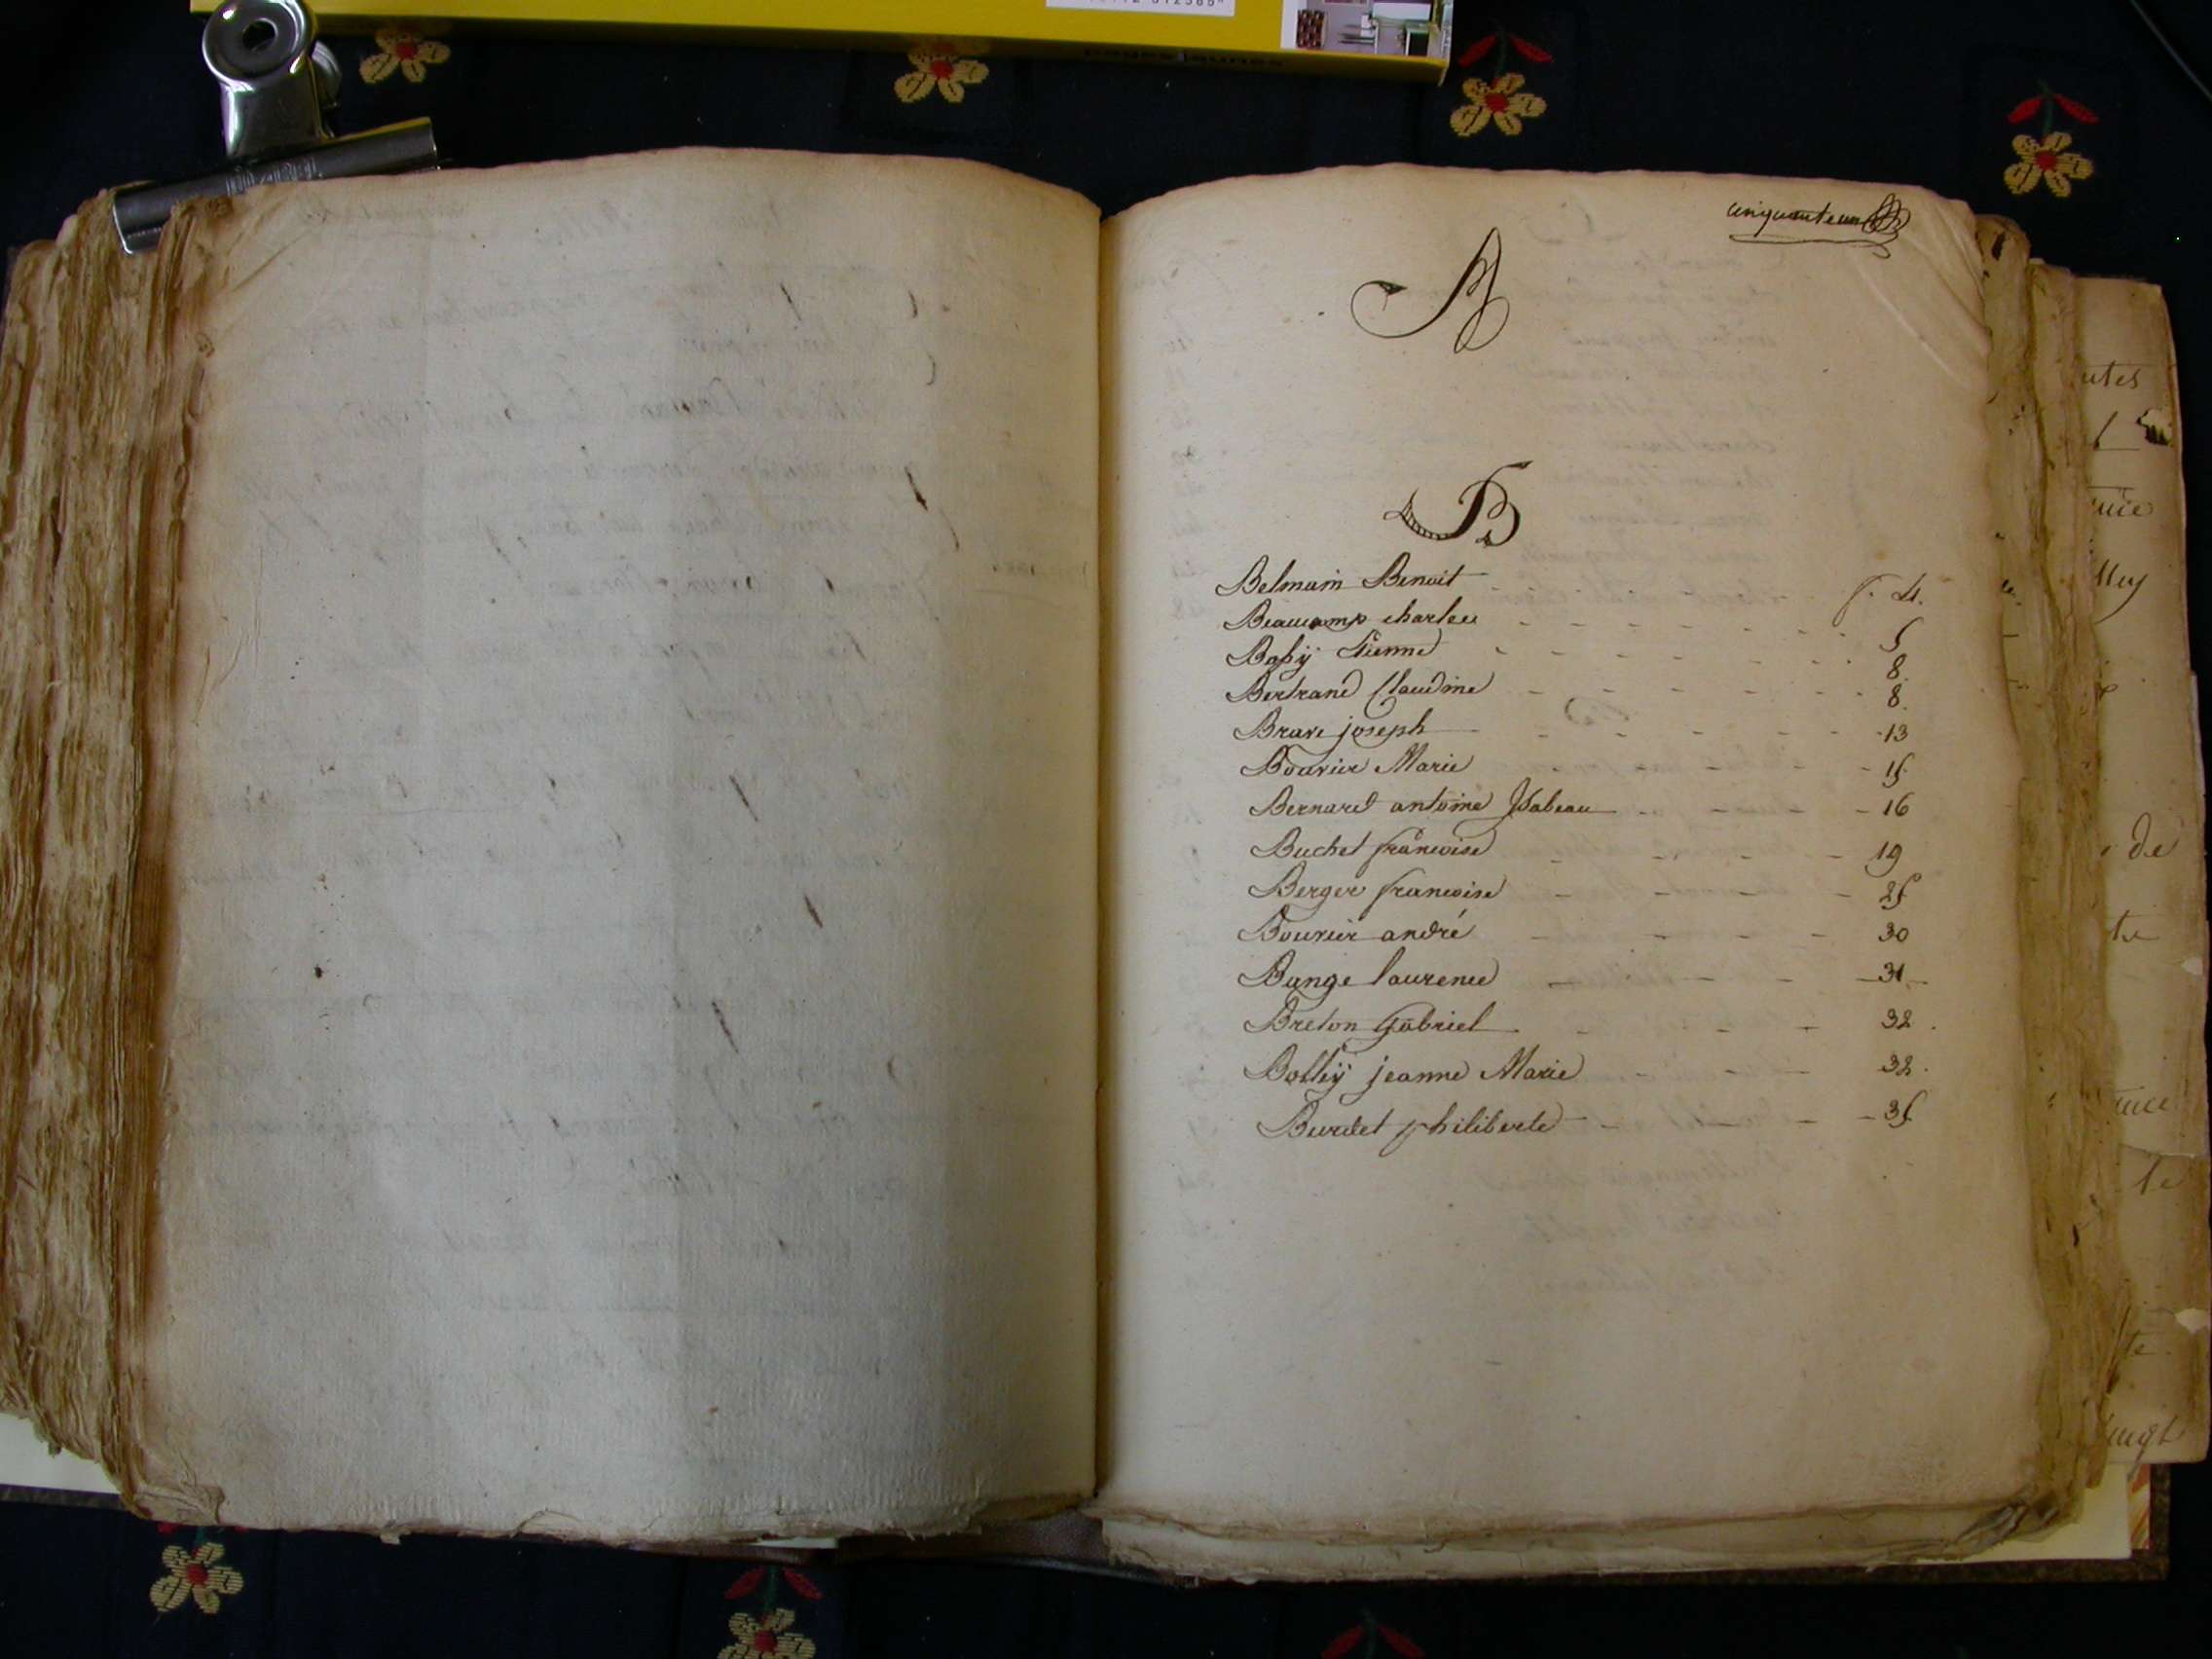 cinquante un
A
B
Belmain Benoit f. 4.
Beaucamp charles 5
Bassÿ Etienne 8.
Bertrand Claudine 8.
Brave joseph 13
Bouvier Marie 15
Bernard antoine Isabeau 16
Buchet francoise 19
Berger francoise 25
Bouvier andré 30
Bange laurence 31
Breton Gabriel 32
Bollÿ jeanne Marie 32.
Burdet philiberte 35